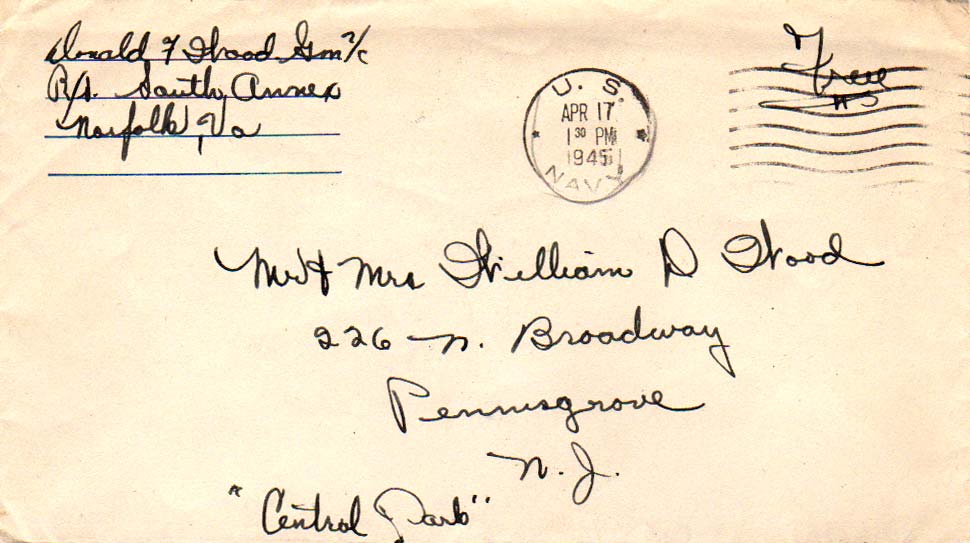 Donald F Wood Gm ²/c
R/S. South Annex
Norfolk, Va
U. S.
APR 17
1 30 PM
1945
NAVY
Free
Mr & Mrs William D Wood
226 N. Broadway
Pennsgrove
N. J.
"Central Park"